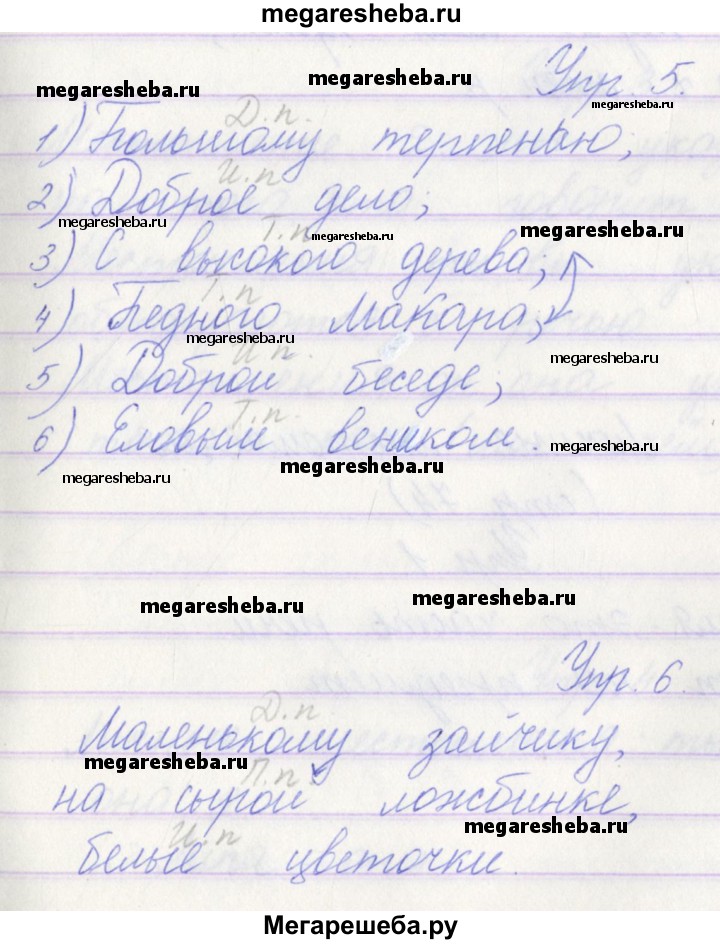 megaresheba.ru
Упр. 5.
megaresheba.ru megaresheba.ru megaresheba.ru
Д.п.
1) Большому терпенью;
И.п
2) Доброе дело;
megaresheba.ru Т.п megaresheba.ru megaresheba.ru
3) С высокого дерева,
Т.п
4) Бедного Макара;
megaresheba.ru И.п megaresheba.ru
5) Доброй беседе;
Т.п
6) Еловым веником.
megaresheba.ru megaresheba.ru megaresheba.ru
megaresheba.ru megaresheba.ru
Упр. 6.
Д.п
Маленькому зайчику,
megaresheba.ru П.п
на сырой ложбинке,
И.п megaresheba.ru
белые цветочки.
Мегарешеба.ру